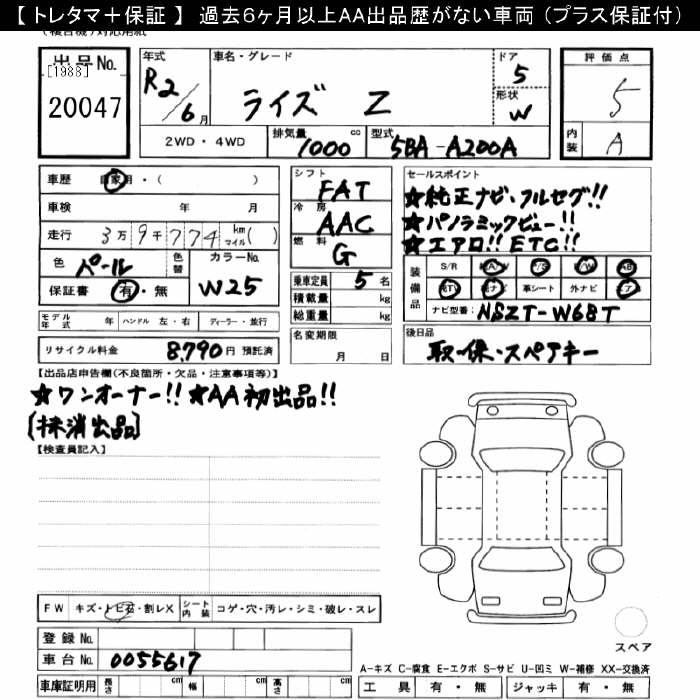 【トレタマ＋保証】 過去６ヶ月以上ＡＡ出品歴がない車両（プラス保証付）
出品No.
[1988]
20047
年式
R2/6月
車名・グレード
ライズ Z
ドア
5
形状
W
評価点
5
内装
A
2WD・4WD
排気量
1000cc
型式
5BA-A200A
車歴 自家用・( )
車検 年 月
走行 3万9千774 km マイル( )
色 パール
色替
カラーNo.
W25
保証書 有・無
シフト
FAT
冷房
AAC
燃料
G
乗車定員 5名
積載量 kg
総重量 kg
セールスポイント
★純正ナビ・フルセグ!!
★パノラミックビュー!!
★エアロ!! ETC!!
装備品
S/R A/W P/S P/W AB
TV ナビ 革シート 外ナビ エア
ナビ型番: NSZT-W68T
モデル年式 年 ハンドル 左・右 ディーラー・並行
リサイクル料金 8,790円 預託済
名変期限
月 日
後日品
取・保・スペアキー
【出品店申告欄(不良箇所・欠品・注意事項等)】
★ワンオーナー!! ★AA初出品!!
[抹消出品]
【検査員記入】
FW キズ・トビ石・割レX シート内装 コゲ・穴・汚レ・シミ・破レ・スレ
登録No.
車台No. 0055617
車庫証明用 長さ cm 幅 cm 高さ cm
スペア
A-キズ C-腐食 E-エクボ S-サビ U-凹ミ W-補修 XX-交換済
工具 有・無 ジャッキ 有・無